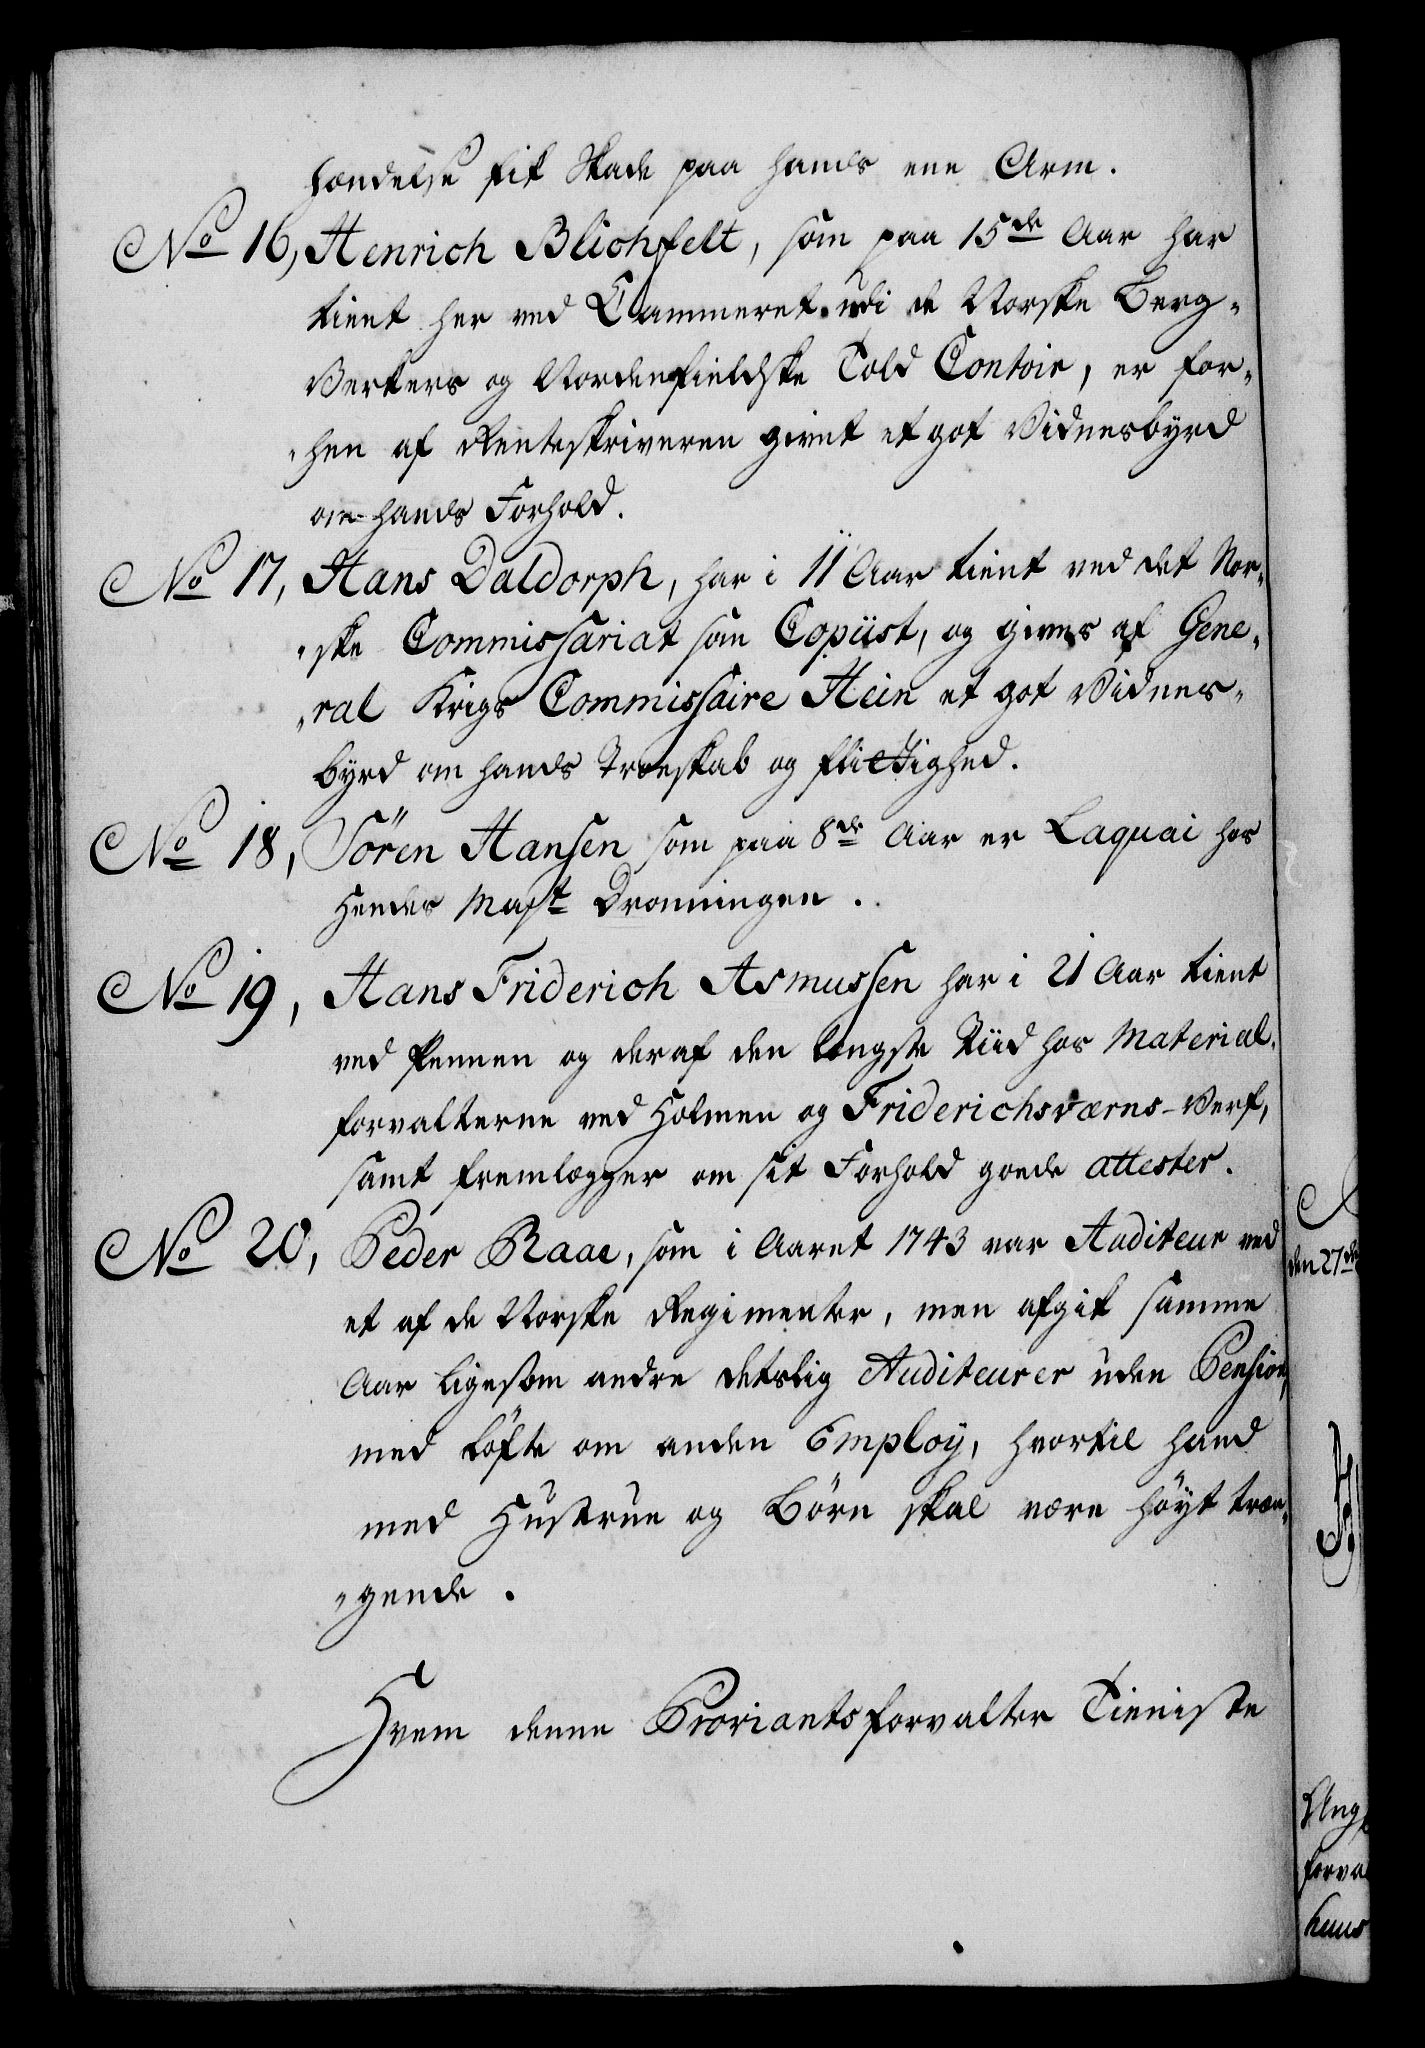 hændelse fik Skade paa hands ene Arm.
No 16, Henrich Blichfelt, som paa 15de Aar har
tient her ved Cammeret udi de Norske Berg-
Verkers og Nordenfieldske Told Contoir, er for-
hen af Renteskriveren givet et got Vidnesbyrd
om hands Forhold.
No 17, Hans Daldorph, har i 11 Aar tient ved det Nor-
ske Commissariat som Copiist, og gives af Gene-
ral Krigs Commissaire Hein et got Vidnes-
byrd om hands Troeskab og flittighed.
No 18, Sören Hansen som paa 8de Aar er Laquai hos
Hendes Mayst Dronningen.
No 19, Hans Friderich Asmussen har i 21 Aar tient
ved Pennen og deraf den længste Tiid hos Material-
forvalterne ved Holmen og Friderichsværns-Verf,
samt fremlægger om sit Forhold goede attester.
No 20, Peder Raae, som i Aaret 1743 var Auditeur ved
et af de Norske Regimenter, men afgik samme
Aar ligesom andre detslig Auditeurer uden Pension,
med Löfte om anden Employ, hvortil hand
med Hustrue og Börn skal være höyt træn-
gende.
Hvem denne Proviantsforvalter Tieniste
den 27de
Ung
forva
huus